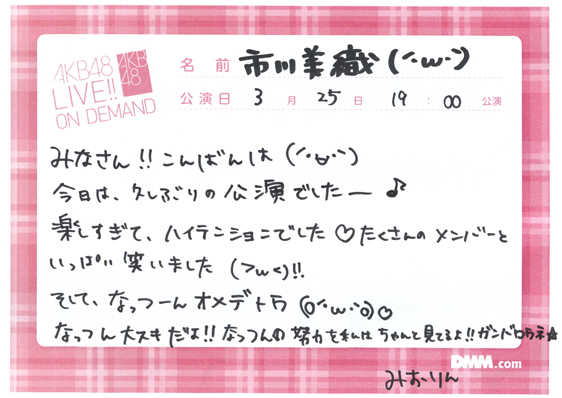 AKB48
LIVE!!
ON DEMAND
AKB
48
名前 市川美織(´·ω·`)
公演日 3月25日 19:00 公演
みなさん!!こんばんは(´·ω·`)
今日は、久しぶりの公演でしたー♪
楽しすぎて、ハイテンションでした♡たくさんのメンバーと
いっぱい笑いました(>ω<)!!
そして、なっつーんオメデトウ(o´·ω·`o)♡
なっつん大スキだよ!!なっつんの努力を私はちゃんと見てるよ!!ガンバロウネ☆
DMM.com
みおりん